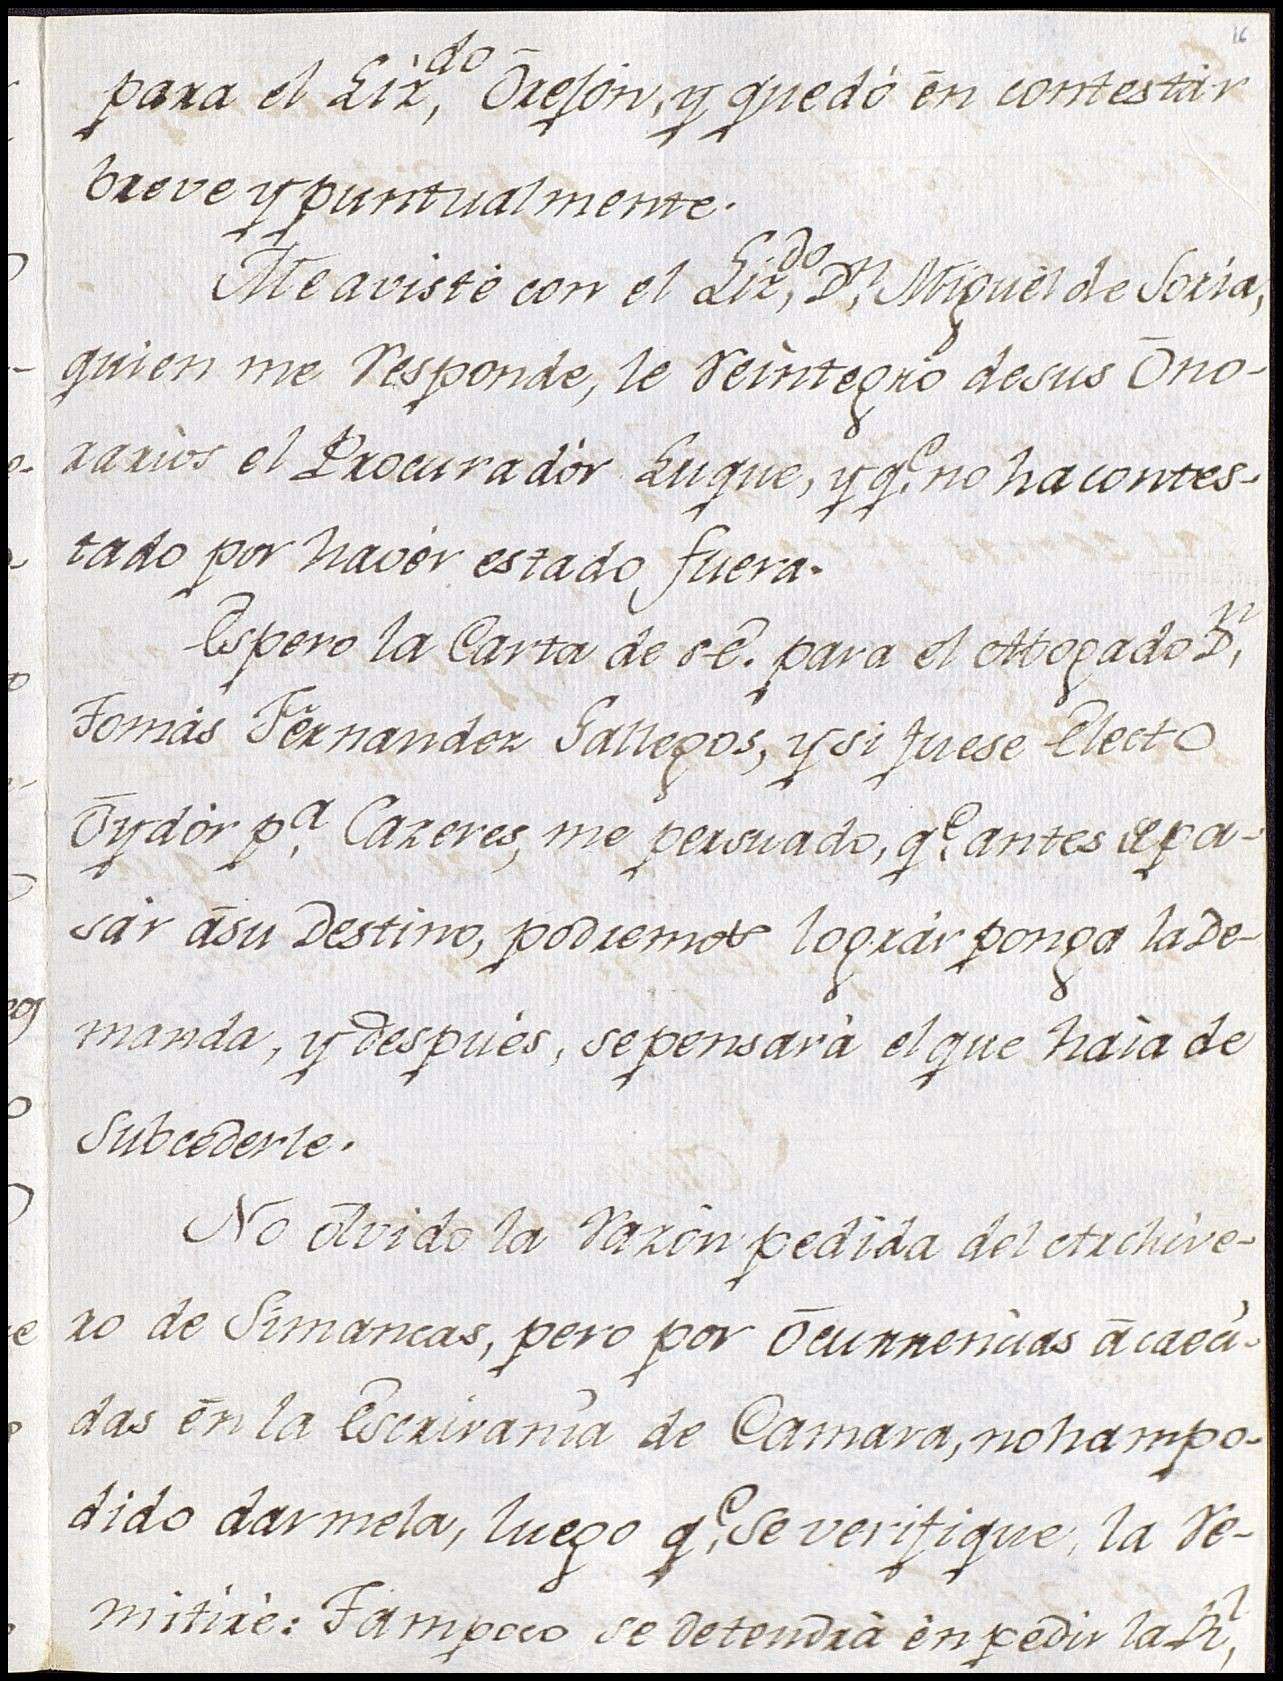 16
para el Liz,do Ōrejón, y quedó ēn contestár
breve y puntualmente.
Me avisté con el Liz,do Dn, Miguèl de Soria,
quien me responde, le reintegró desus Ōno-
rarios el Procuradòr Luque, y qe, no ha contes-
tado por havér estado fuera.
Espero la Carta de SE. para el Abogado Dn,
Tomás Fernandez Gallegos, y si fuese Electo
Ōydór pa, Cazeres, me persuado, qe, antes de pa-
sár āsu Destino, podremos lográr ponga la De-
manda, y después, sepensará el que haia de
Subcederle.
No ōlvido la razón pedida del Archive-
ro de Simancas, pero por Ōcurrencias ācaeci-
das ēn la Escrivanía de Camara, no han po-
dido darmela, luego qe, Se verifique, la re-
mitiré: Tampoco se detendrá én pedir la Rl,